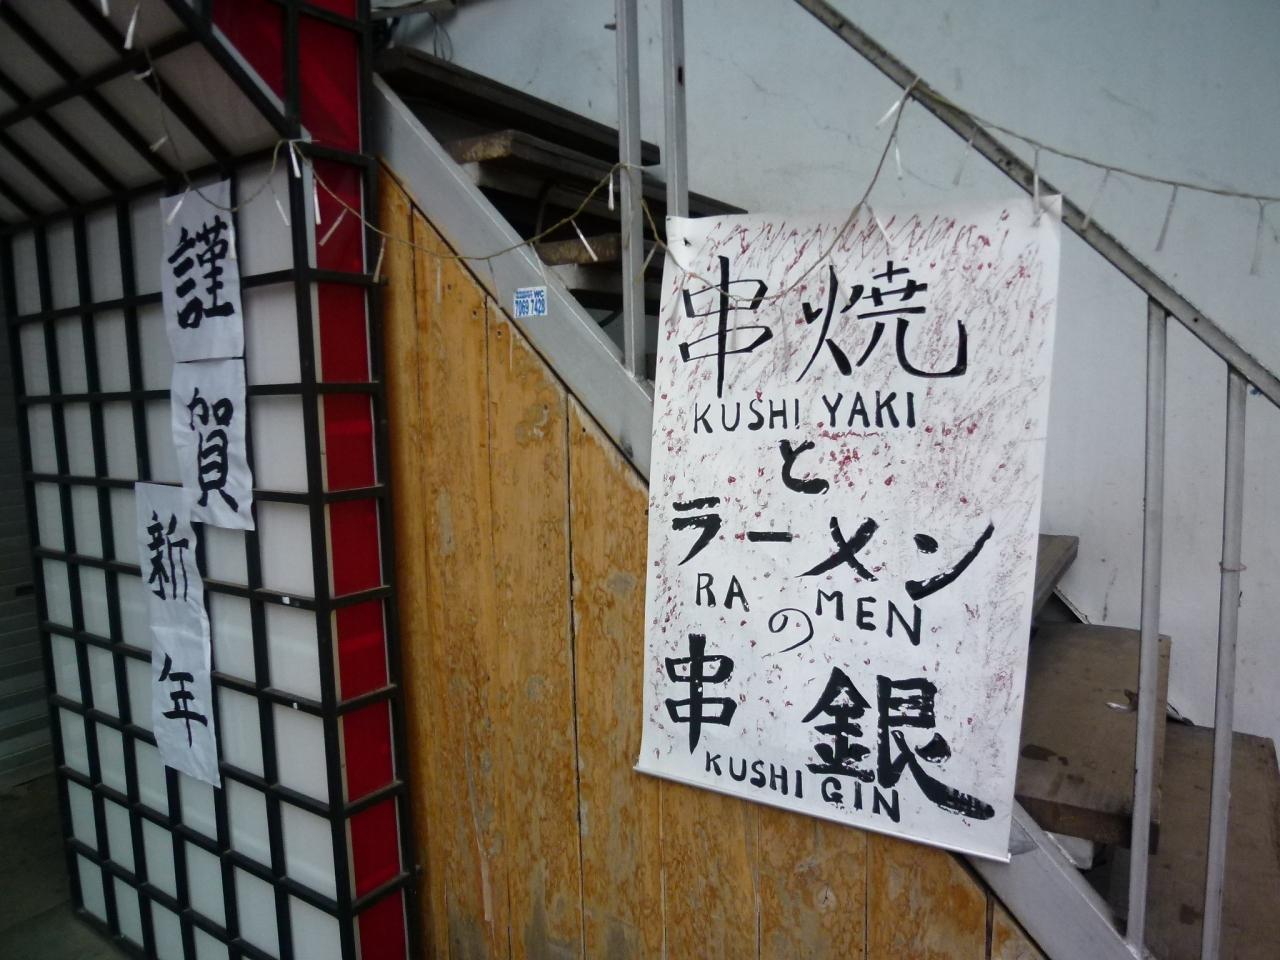 謹賀新年
串焼
KUSHI YAKI
と
ラーメン
RA MEN
の
串銀
KUSHI GIN
7069 7428